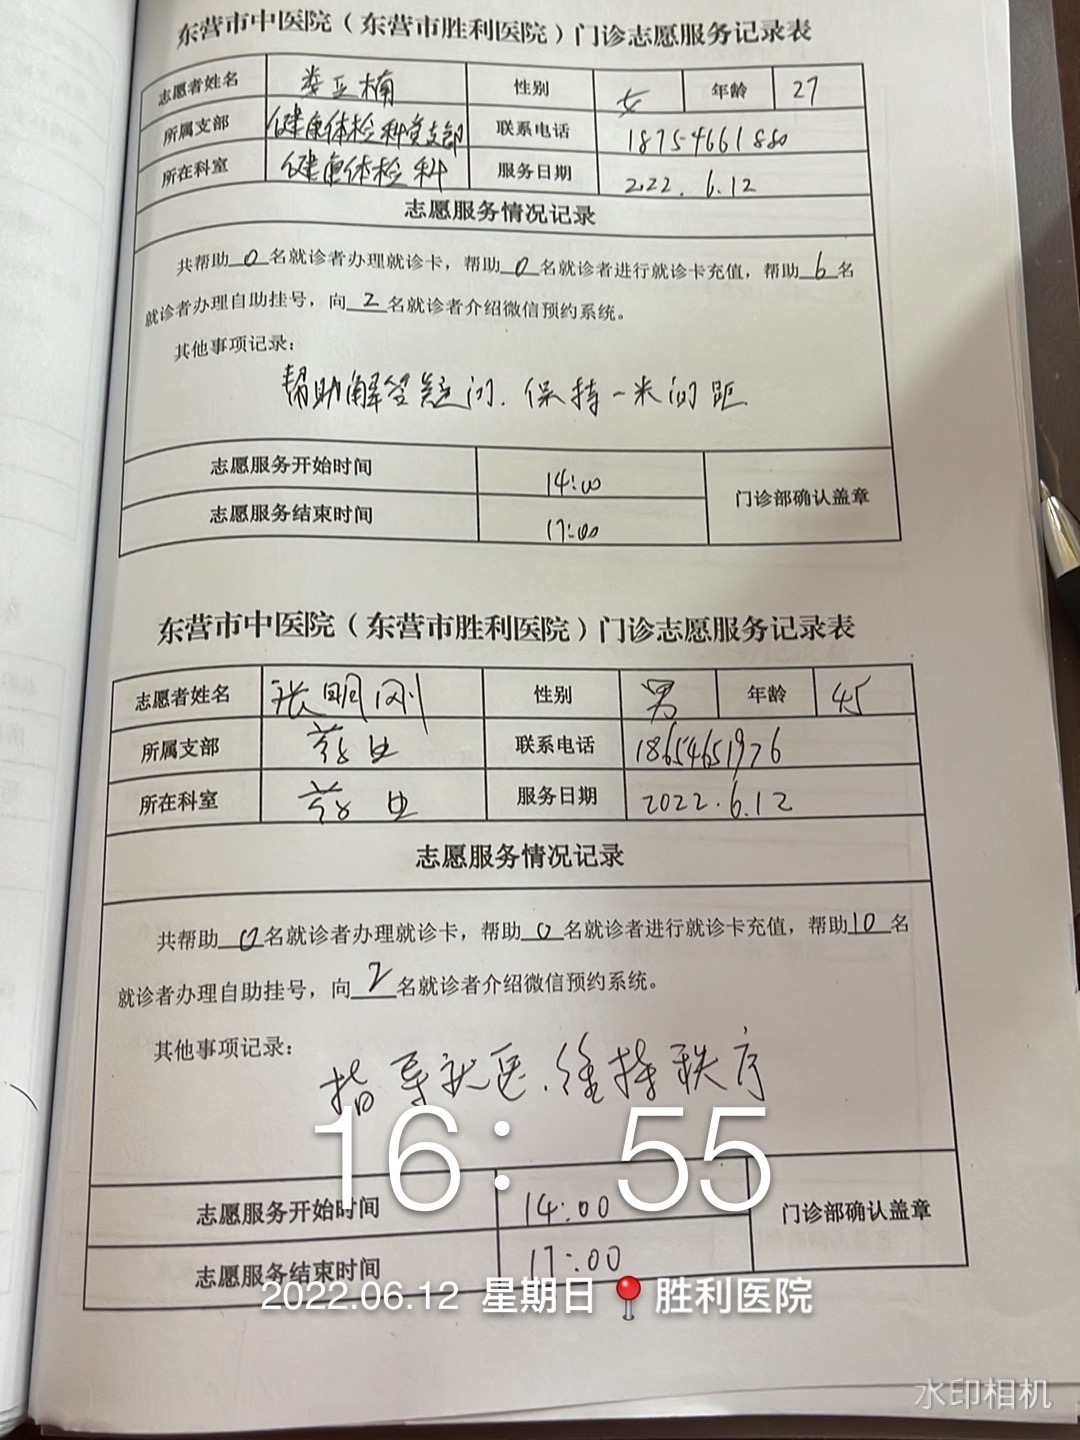 东营市中医院（东营市胜利医院）门诊志愿服务记录表
志愿者姓名 娄亚楠 性别 女 年龄 27
所属支部 健康体检科党支部 联系电话 18754661880
所在科室 健康体检科 服务日期 2022.6.12
志愿服务情况记录
共帮助0名就诊者办理就诊卡，帮助0名就诊者进行就诊卡充值，帮助6名
就诊者办理自助挂号，向2名就诊者介绍微信预约系统。
其他事项记录：
帮助解答疑问、保持一米间距
志愿服务开始时间 14:00
门诊部确认盖章
志愿服务结束时间 17:00
东营市中医院（东营市胜利医院）门诊志愿服务记录表
志愿者姓名 张明刚 性别 男 年龄 45
所属支部 联系电话 18654651976
所在科室 服务日期 2022.6.12
志愿服务情况记录
共帮助0名就诊者办理就诊卡，帮助0名就诊者进行就诊卡充值，帮助10名
就诊者办理自助挂号，向2名就诊者介绍微信预约系统。
其他事项记录：
指导就医、维持秩序
16：55
志愿服务开始时间 14:00
门诊部确认盖章
志愿服务结束时间 17:00
2022.06.12 星期日 胜利医院
水印相机